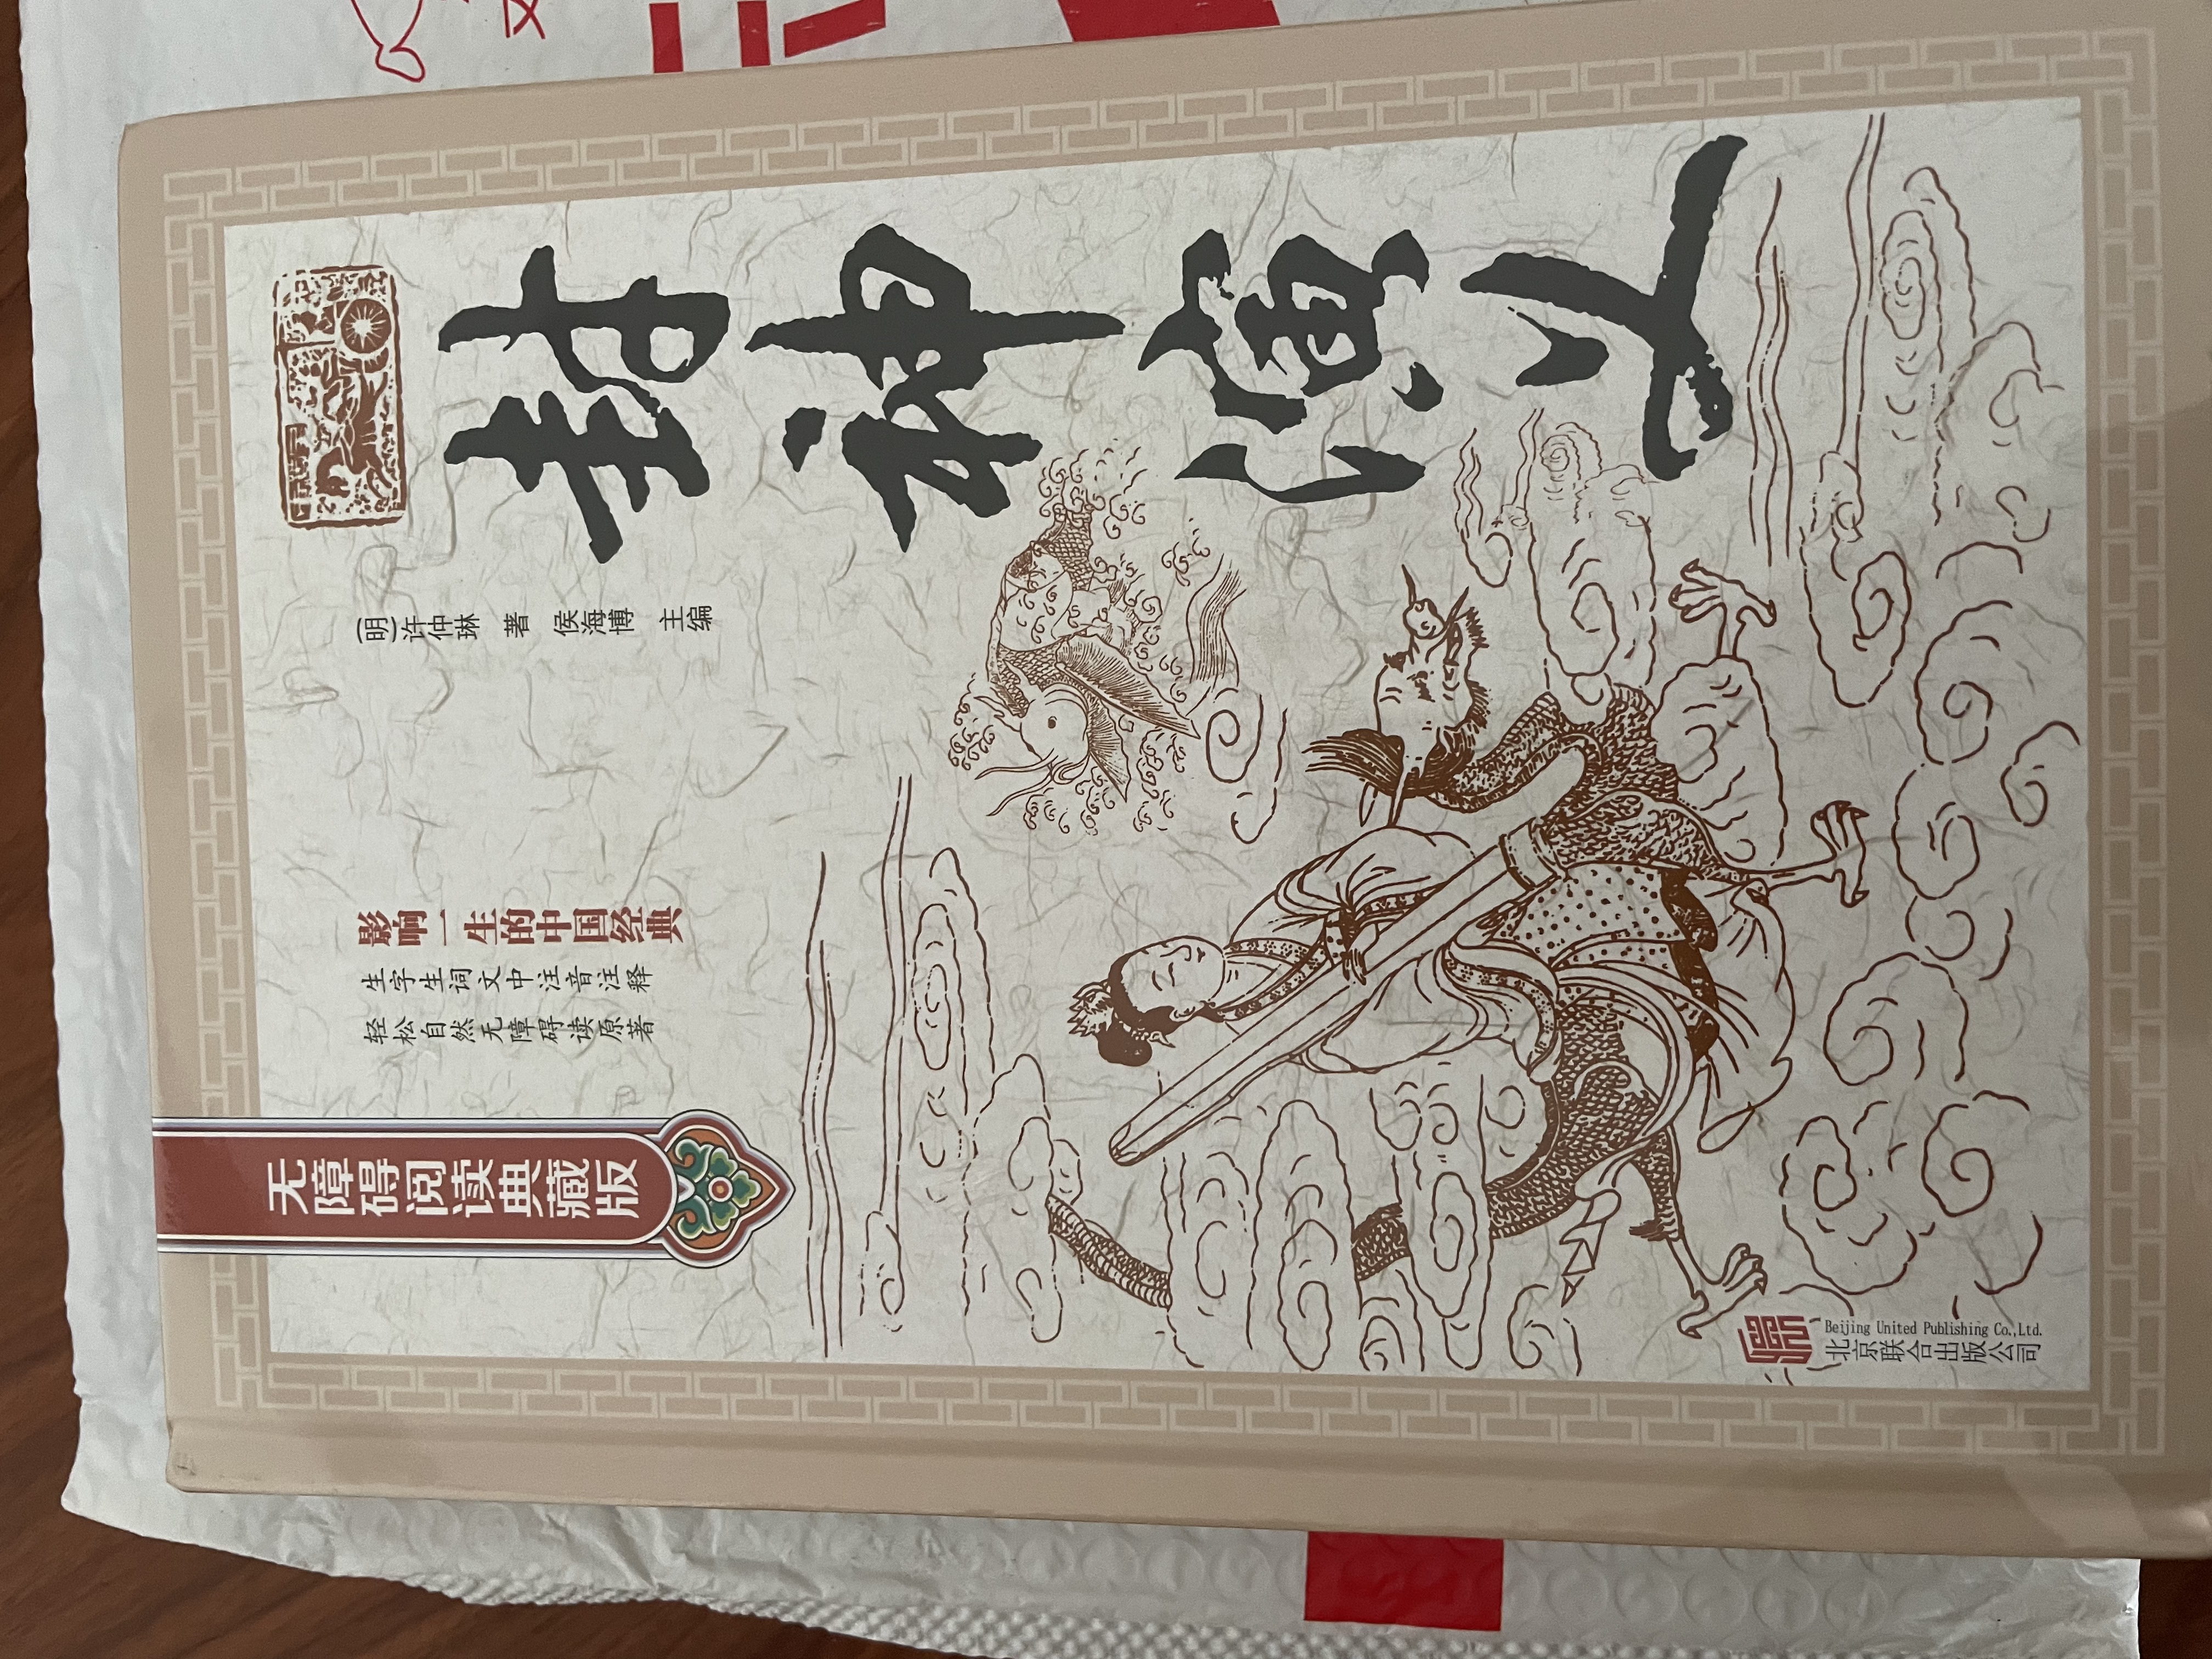 无障碍阅读典藏版
影响一生的中国经典
生字生词文中注音注释
轻松自然无障碍读原著
[明]许仲琳 著 侯海博 主编
封神演义
Beijing United Publishing Co.,Ltd.
北京联合出版公司